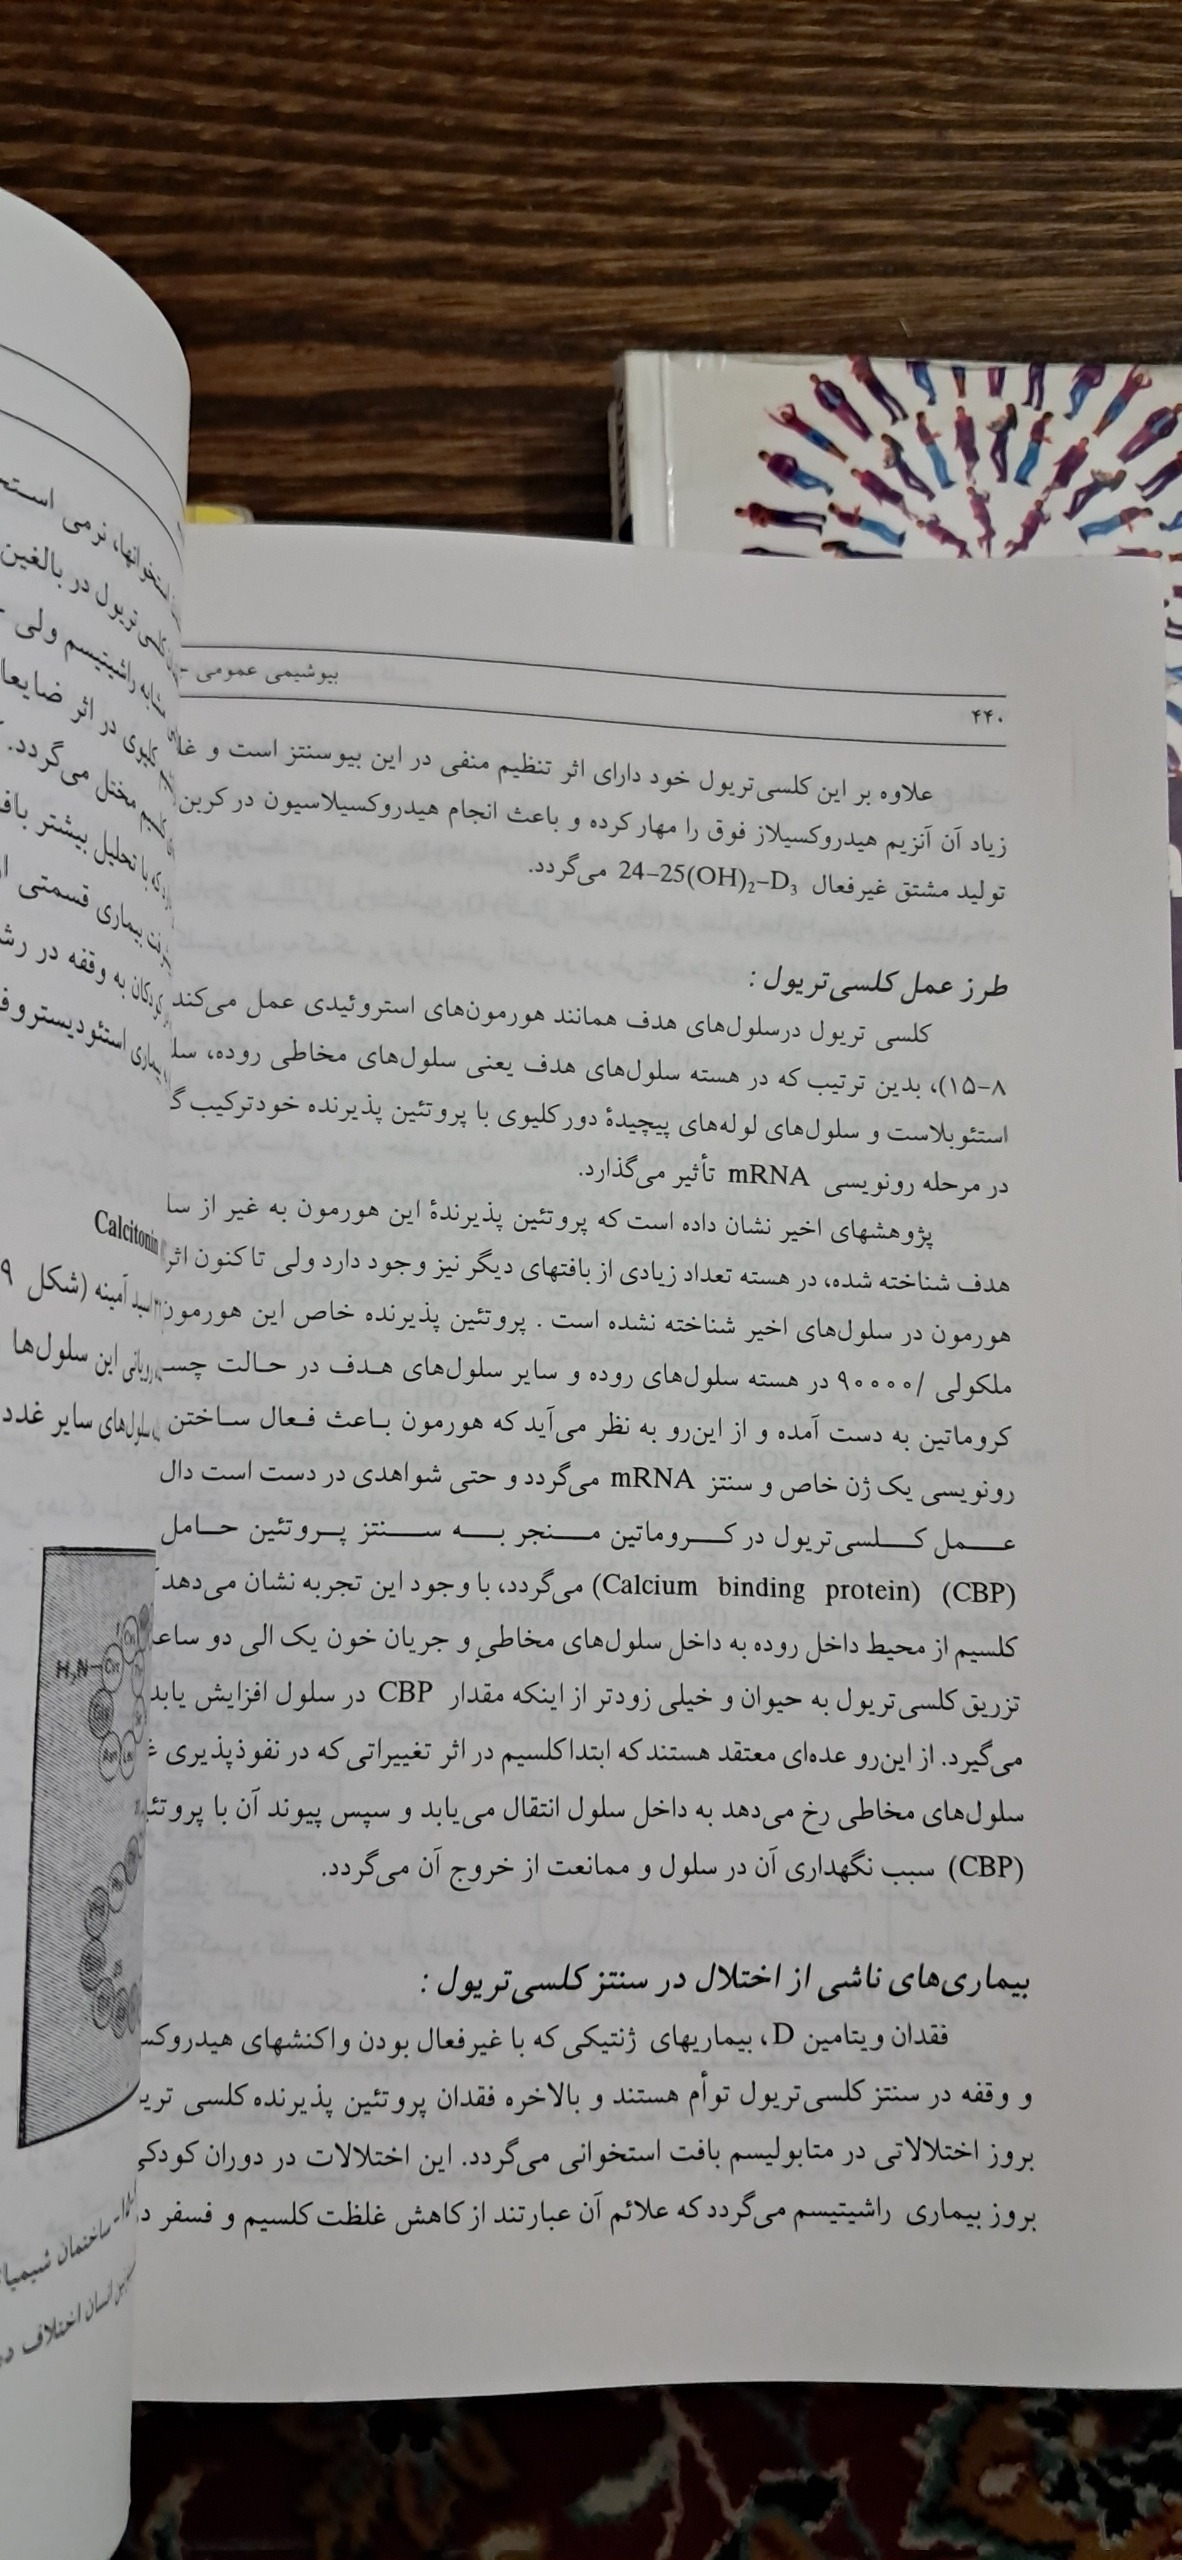 بیوشیمی عمومی -
۴۴۰
علاوه بر این کلسی‌تریول خود دارای اثر تنظیم منفی در این بیوسنتز است و
زیاد آن آنزیم هیدروکسیلاز فوق را مهار کرده و باعث انجام هیدروکسیلاسیون در کربن
تولید مشتق غیرفعال 24–25(OH)₂–D₃ می‌گردد.
طرز عمل کلسی‌تریول :
کلسی تریول درسلول‌های هدف همانند هورمون‌های استروئیدی عمل می‌کند
۸–۱۵)، بدین ترتیب که در هسته سلول‌های هدف یعنی سلول‌های مخاطی روده،
استئوبلاست و سلول‌های لوله‌های پیچیدهٔ دور کلیوی با پروتئین پذیرنده خودترکیب
در مرحله رونویسی mRNA تأثیر می‌گذارد.
پژوهشهای اخیر نشان داده است که پروتئین پذیرندهٔ این هورمون به غیر از
هدف شناخته شده، در هسته تعداد زیادی از بافتهای دیگر نیز وجود دارد ولی تاکنون اثر
هورمون در سلول‌های اخیر شناخته نشده است . پروتئین پذیرنده خاص این هورمون
ملکولی /۹۰۰۰۰ در هسته سلول‌های روده و سایر سلول‌های هدف در حالت
کروماتین به دست آمده و از این‌رو به نظر می‌آید که هورمون باعث فعال ساختن
رونویسی یک ژن خاص و سنتز mRNA می‌گردد و حتی شواهدی در دست است دال
عمل کلسی‌تریول در کروماتین منجر به سنتز پروتئین حامل
(CBP) (Calcium binding protein) می‌گردد، با وجود این تجربه نشان می‌دهد
کلسیم از محیط داخل روده به داخل سلول‌های مخاطی و جریان خون یک الی دو
تزریق کلسی‌تریول به حیوان و خیلی زودتر از اینکه مقدار CBP در سلول افزایش یابد
می‌گیرد. از این‌رو عده‌ای معتقد هستند که ابتدا کلسیم در اثر تغییراتی که در نفوذپذیری
سلول‌های مخاطی رخ می‌دهد به داخل سلول انتقال می‌یابد و سپس پیوند آن با
(CBP) سبب نگهداری آن در سلول و ممانعت از خروج آن می‌گردد.
بیماری‌های ناشی از اختلال در سنتز کلسی‌تریول :
فقدان ویتامین D، بیماریهای ژنتیکی که با غیرفعال بودن واکنشهای
و وقفه در سنتز کلسی‌تریول توأم هستند و بالاخره فقدان پروتئین پذیرنده کلسی
بروز اختلالاتی در متابولیسم بافت استخوانی می‌گردد. این اختلالات در دوران کودکی
بروز بیماری راشیتیسم می‌گردد که علائم آن عبارتند از کاهش غلظت کلسیم و فسفر
استخوانها، نرمی
کلسی تریول در بالغین
مشابه راشیتیسم ولی
کلیوی در اثر
مختل می‌گردد.
که با تحلیل بیشتر
بیماری قسمتی
کودکان به وقفه در
بیماری
Calcitonin
اسید آمینه (شکل ۹
این سلول‌ها
سلول‌های سایر غدد
H₂N
ساختمان
انسان اختلاف